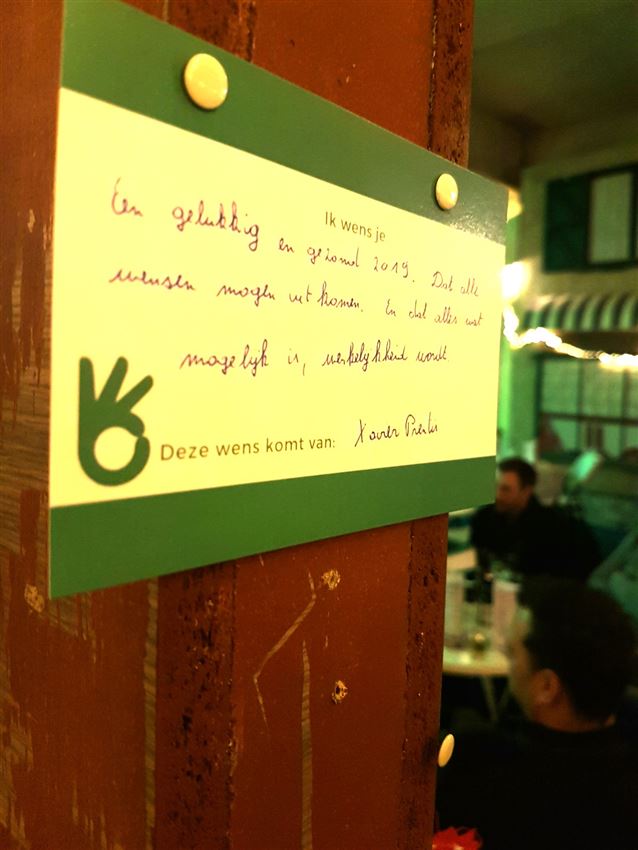 Ik wens je
Een gelukkig en gezond 2019. Dat alle
wensen mogen uitkomen. En dat alles wat
mogelijk is, werkelijkheid wordt.
Deze wens komt van: Xavier